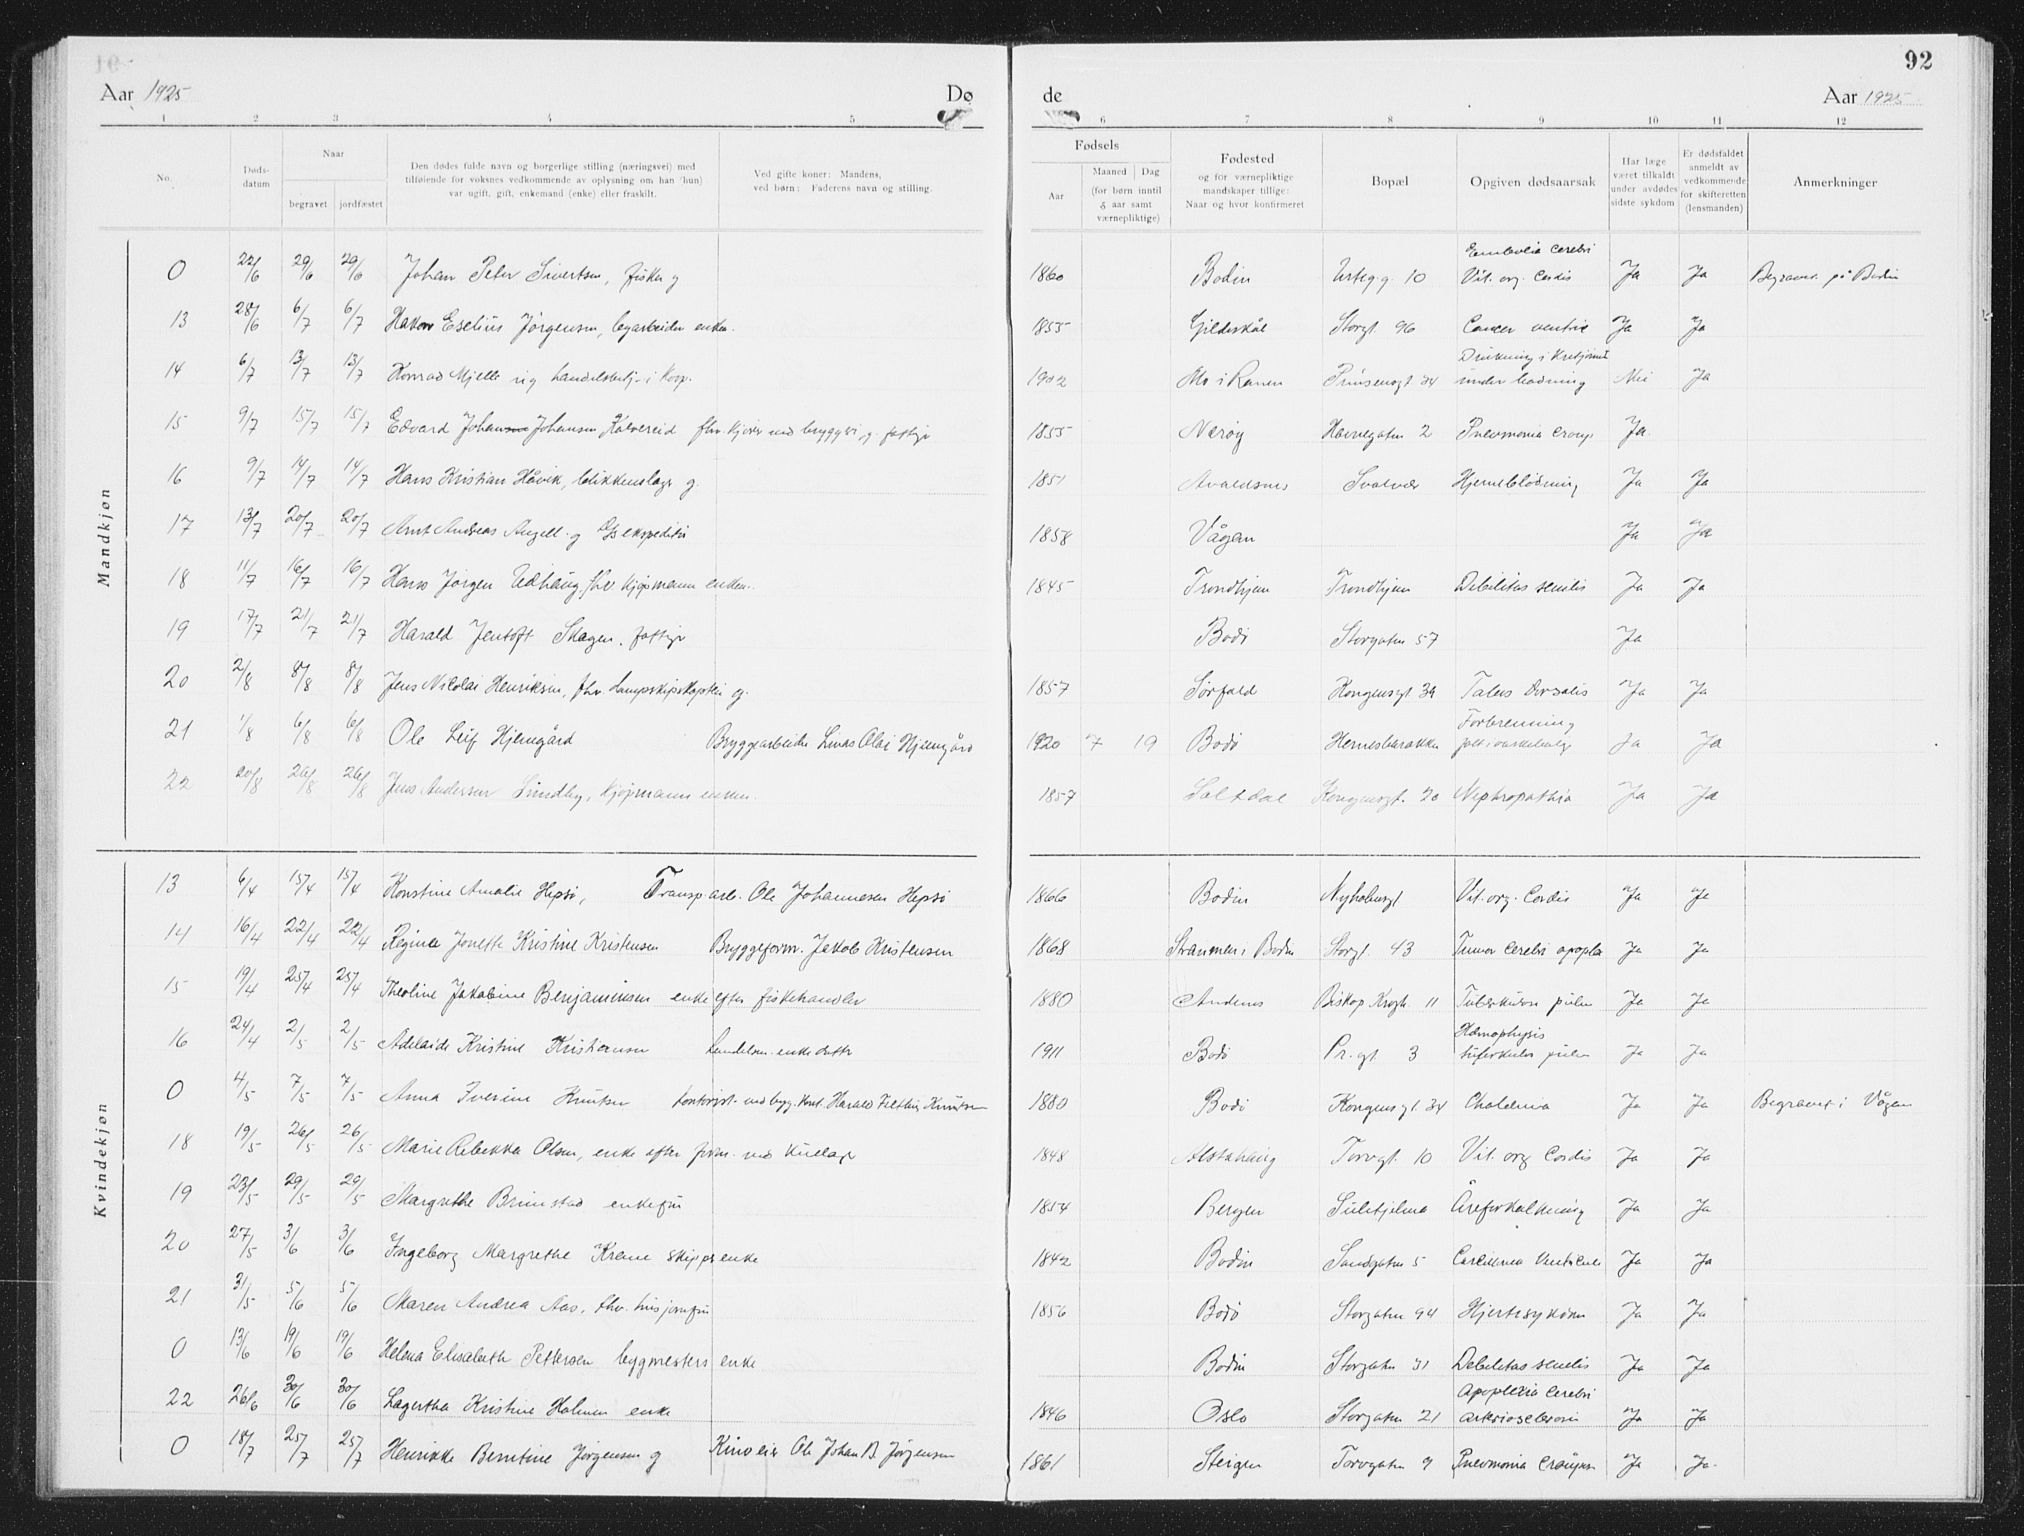 92
Aar 1925 Dø de Aar 1925
1 2 3 4 5 6 7 8 9 10 11 12
No.
Døds-datum
Naar
begravet jordfæstet
Den dødes fulde navn og borgerlige stilling (næringsvei) med
tilføiende for voksnes vedkommende av oplysning om han (hun)
var ugift, gift, enkemand (enke) eller fraskilt.
Ved gifte koner: Mandens,
ved børn: Faderens navn og stilling.
Fødsels
Aar
Maaned Dag
(for børn inntil
5 aar samt
værnepliktige)
Fødested
og for værnepliktige
mandskaper tillige:
Naar og hvor konfirmeret
Bopæl
Opgiven dødsaarsak
Har læge
været tilkaldt
under avdødes
sidste sykdom
Er dødsfaldet
anmeldt av
vedkommende
for skifteretten
(lensmanden)
Anmerkninger
Mandkjøn
0 22/6 29/6 29/6 Johan Peter Sivertsen, fisker g 1860 Bodin 10 Embolia cerebri Vit. org. Cordis Ja Ja Begravet på Bodin
13 28/6 6/7 6/7 Hakon Eselius Jørgensen, enkem. 1855 Gildeskål Storgt 96 Cancer ventric Ja Ja
14 6/7 13/7 13/7 Konrad Mjelle ug handelsbetj. i Koop. 1902 Mo i Ranen Prinsensgt 34 Drukning under badning Nei Ja
15 9/7 15/7 15/7 Edvard Johansen Kalvereid fhv. kjører ved bryggeri, g. fattig 1855 Nærøy Havnegaten 2 Pneumonia croup Ja
16 9/7 14/7 14/7 Hans Kristian Håvik, blikkenslager g. 1851 Avaldsnes Svolvær Hjerneblødning Ja Ja
17 13/7 20/7 20/7 Arnt Andreas Angell g. ekspeditør 1858 Vågan Ja Ja
18 11/7 16/7 16/7 Hans Jørgen Udhaug, fhv. kjøpmann enkem. 1845 Trondhjem Trondhjem Debilitas senilis Ja Ja
19 17/7 21/7 21/7 Harald Jentoft Skagen, fattig Bodø Storgaten 57 Ja
20 2/8 8/8 8/8 Jens Nicolai Henriksen, fhv. dampskipskaptein g. 1857 Sørfold Kongensgt 39 Tabes dorsalis Ja Ja
21 1/8 6/8 6/8 Ole Leif Hjemgård Bryggearbeider Linas Olai Hjemgård 1920 7 19 Bodø Hernesbarakken Forbrenning falt i vaskebalje Ja Ja
22 20/8 26/8 26/8 Jens Andersen Lundby, kjøpmann enkem. 1857 Saltdal Kongensgt. 20 Nephropathia Ja Ja
Kvindekjøn
13 6/4 15/4 15/4 Konstine Amalie Hepsø, Transp. arb. Ole Johannesen Hepsø 1866 Bodin Nyholmsgt Vit. org. Cordis Ja Ja
14 16/4 22/4 22/4 Regine Jonette Kristine Kristensen Bryggeform. Jakob Kristensen 1868 Straumen i Bodin Storgt. 43 Tumor cerebri apoplex Ja Ja
15 19/4 25/4 25/4 Theoline Jakobine Benjaminsen enke efter fiskehandler 1880 Andenes Biskop Kroghs 11 Tuberkulose pulm Ja Ja
16 24/4 2/5 2/5 Adelaide Kristine Kristiansen enkedatter 1911 Bodø Pr. gt 3 Hæmophysis tuberkulos pulm Ja Ja
0 4/5 7/5 7/5 Anna Iverine Knutsen kontorist ved byg. kont. Harald Knutsen 1880 Bodø Kongensgt. 34 Ja Ja Begravet i Vågan
18 19/5 26/5 26/5 Marie Rebekka Olsen, enke efter form. ved kullager 1848 Alstahaug Torvgt. 10 Vit. org Cordis Ja Ja
19 23/5 29/5 29/5 Margrethe Brimstad enkefru 1854 Bergen Sulitjelma Åreforkalkning Ja Ja
20 27/5 3/6 3/6 Ingeborg Margrethe Krane skippers enke 1842 Bodin Sandgaten 5 Carcinoma Ventriculi Ja Ja
21 31/5 5/6 5/6 Maren Andrea Aas, fhv. husjomfru 1856 Bodø Storgaten 94 Hjertesykdom Ja Ja
0 13/6 19/6 19/6 Helena Elisabeth Pettersen bygmesters enke Bodin Storgaten 31 Debilitas senilis Ja Ja
22 26/6 30/6 30/6 Lagertha Kristine Holmen enke 1846 Oslo Storgaten 21 Apoplexia cerebri arteriosclerosis Ja Ja
0 18/7 25/7 25/7 Henrikke Berntine Jørgensen g Kinoeier Ole Johan B. Jørgensen 1861 Steigen Torvgaten 9 Pneumonia croupos Ja Ja